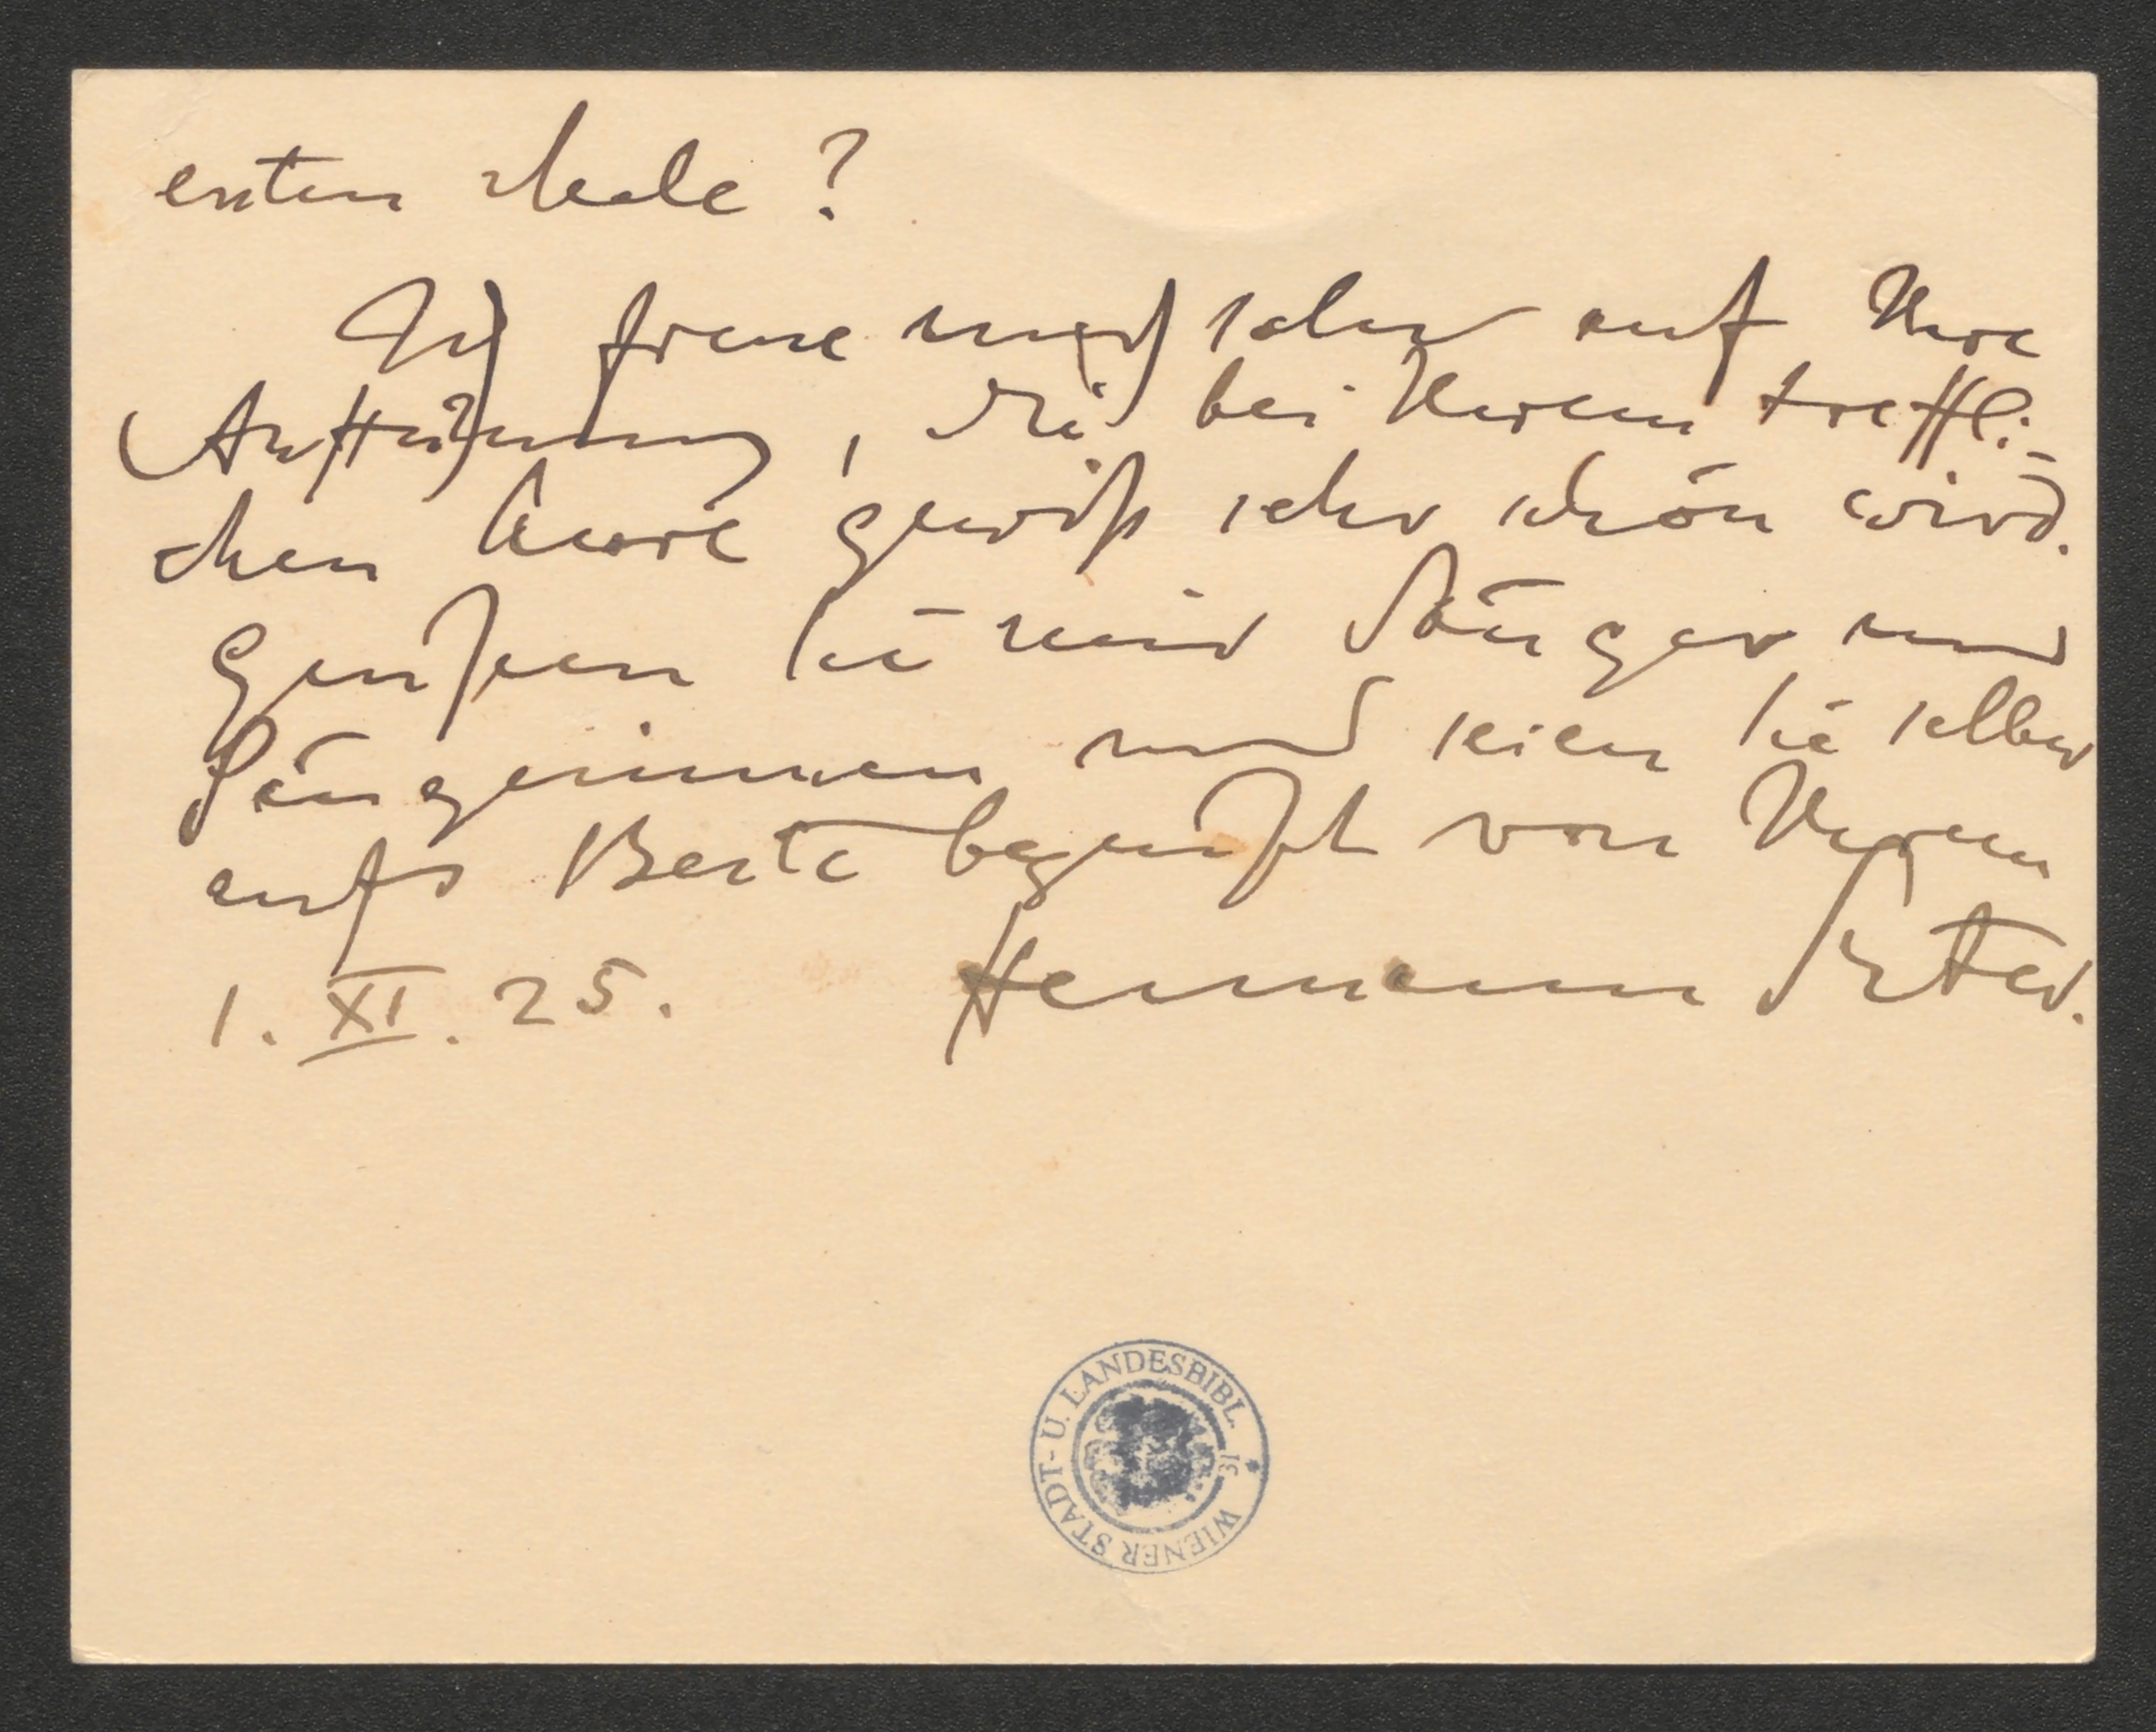 ersten Male?
Ich freue mich sehr auf Ihre
Aufführung, die bei Ihrem treffli-
chen Chore gewiß sehr schön wird.
Grüßen Sie mir Sänger und
Sängerinnen und seien Sie selber
aufs Beste begrüßt von Ihrem
1. XI. 25. Hermann Suter.
WIENER STADT- U. LANDESBIBL.